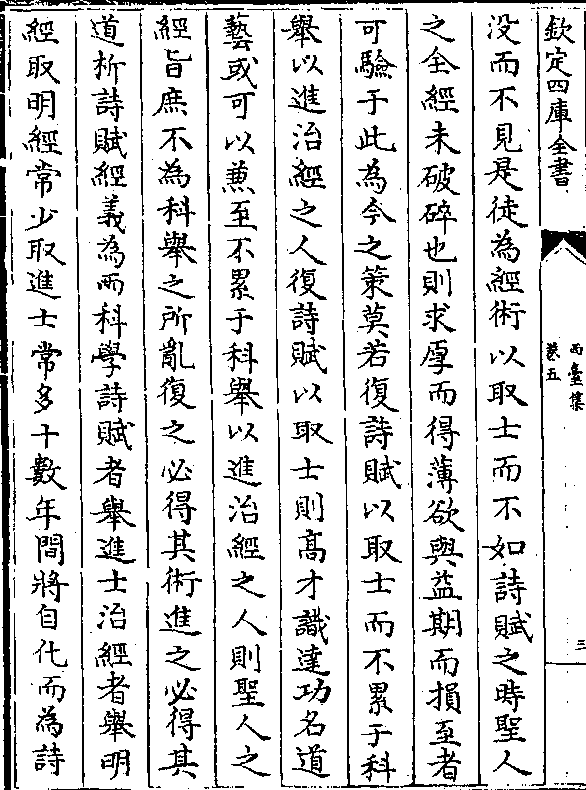 欽定四庫全書
西臺集
卷五
三
没而不見是徒為經術以取士而不如詩賦之時聖人
之全經未破碎也則求厚而得薄欲與益期而損至者
可驗于此為今之策莫若復詩賦以取士而不累于科
舉以進治經之人復詩賦以取士則髙才識達功名道
藝或可以兼至不累于科舉以進治經之人則聖人之
經旨庶不為科舉之所亂復之必得其術進之必得其
道析詩賦經義為兩科學詩賦者舉進士治經者舉明
經取明經常少取進士常多十數年間將自化而為詩